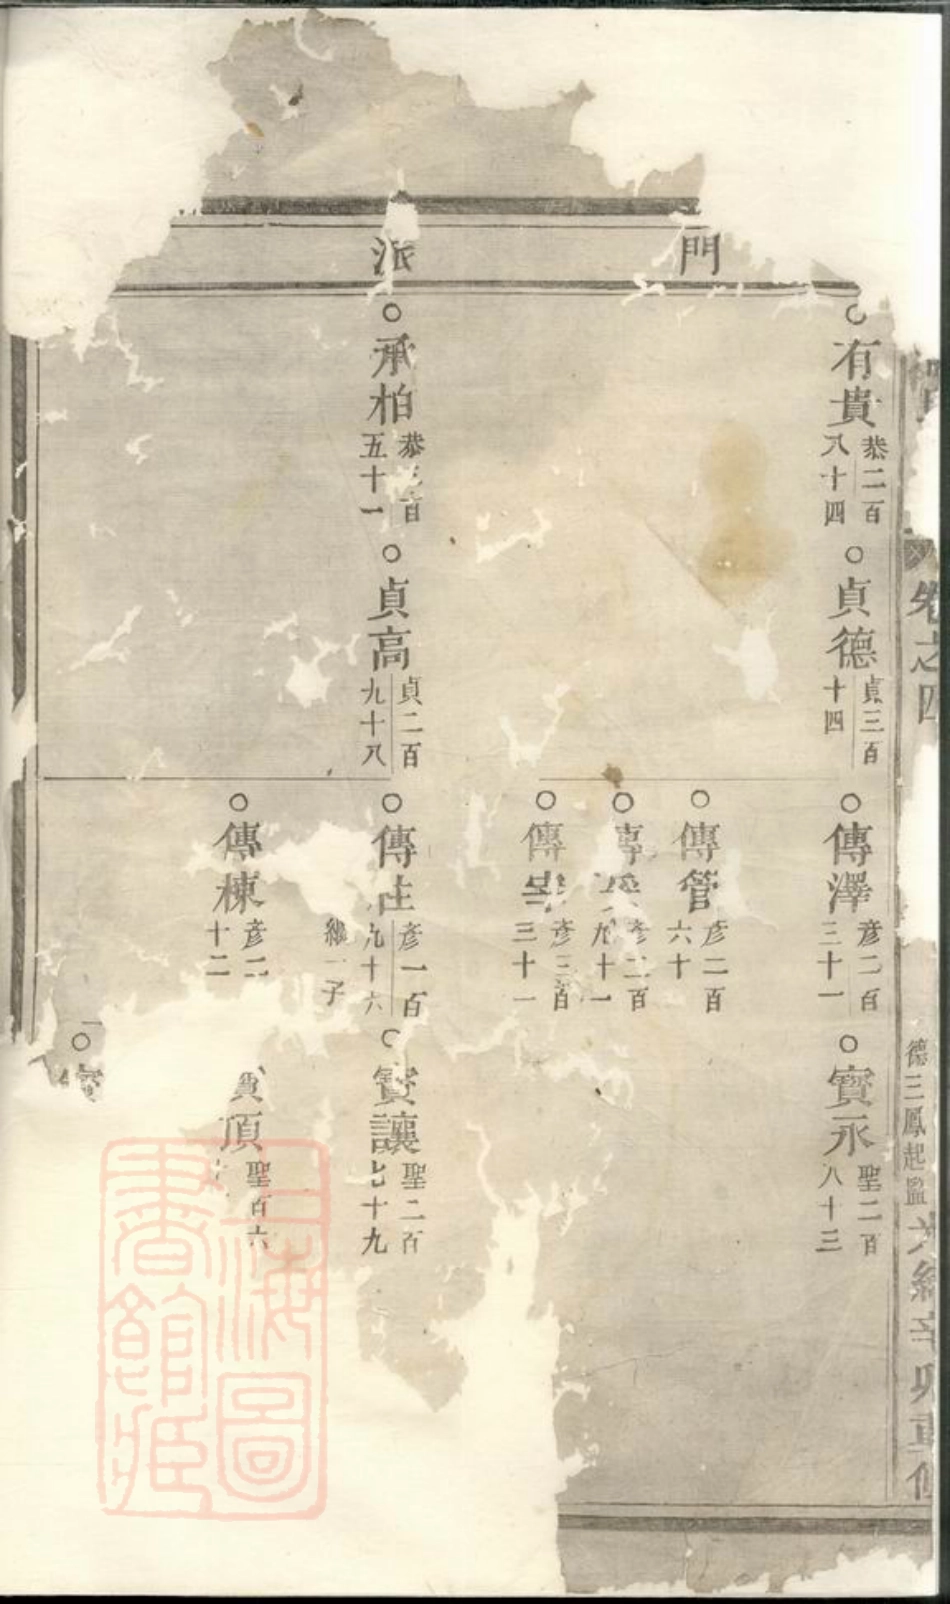 卷之四
德三鳳起監
辛卯重修
門
有貴 恭二百八十四
貞德 貞三百十四
傳澤 彥二百三十一
寳永 聖二百八十三
傳管 彥二百六十
彥二百九十一
傳 彥三百三十一
派
承柏 恭 百五十一
貞高 貞二百九十八
傳 彥一百九十六
繼一子
寳讓 聖二百七十九
傳棟 彥二 十二
頂 聖百六
上海圖書館藏